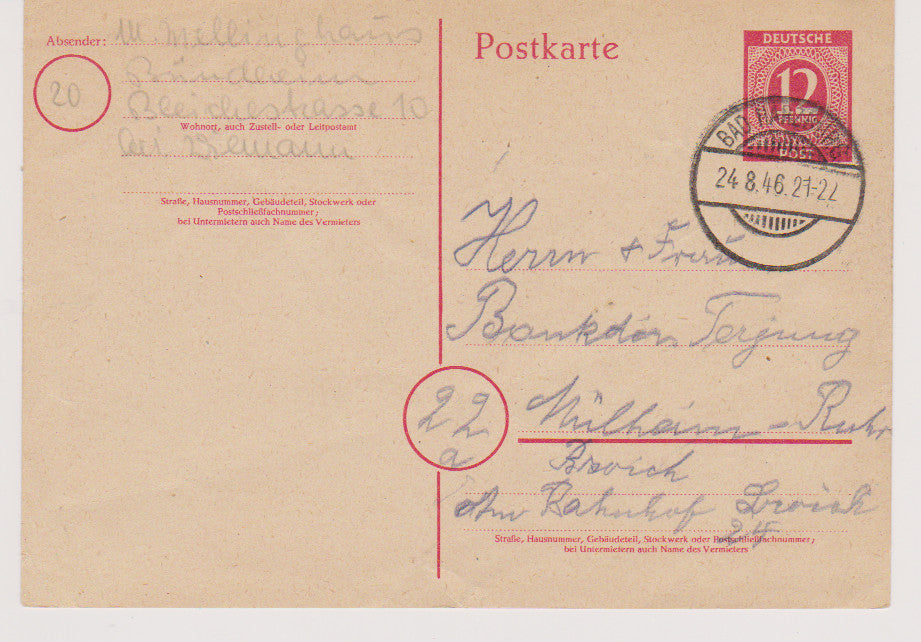 Absender: M. Wellinghaus
20
Bündheim
Bleichestrasse 10
Wohnort, auch Zustell- oder Leitpostamt
bei
Straße, Hausnummer, Gebäudeteil, Stockwerk oder
Postschließfachnummer;
bei Untermietern auch Name des Vermieters
Postkarte
DEUTSCHE
12
PFENNIG
POST
BAD
24.8.46.21-22
Herrn + Frau
Bankdir. Terjung
22
a
Mülheim-Ruhr
Broich
Am Bahnhof Broich
24
Straße, Hausnummer, Gebäudeteil, Stockwerk oder Postschließfachnummer;
bei Untermietern auch Name des Vermieters